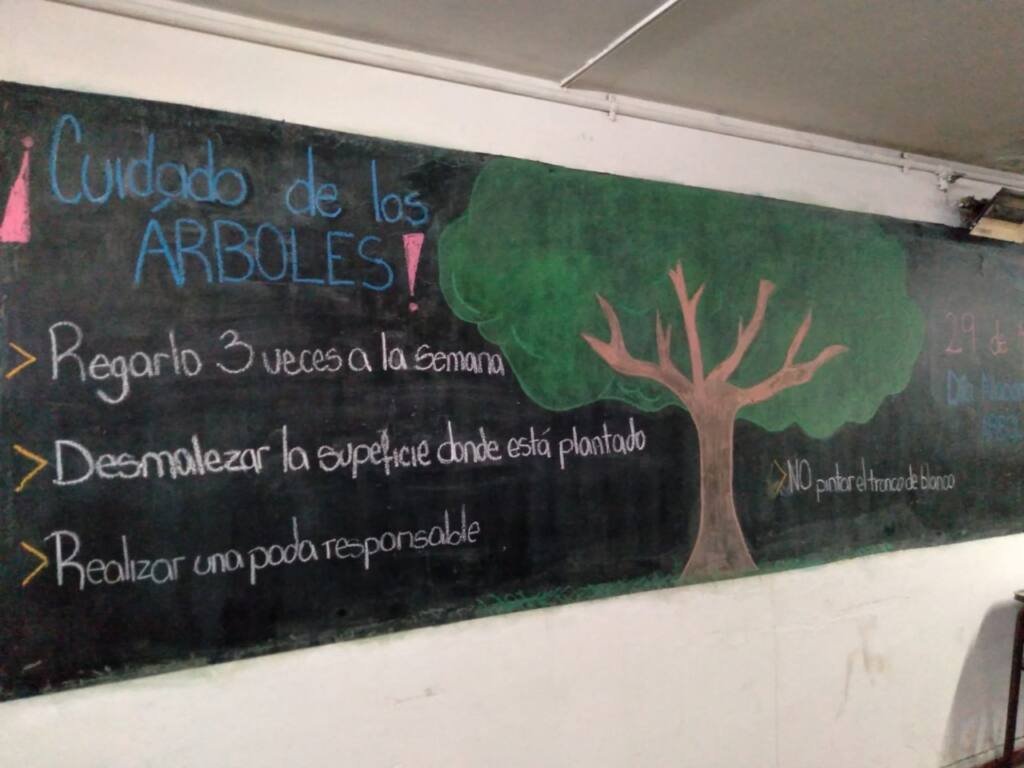 ¡Cuidado de los
ÁRBOLES!
> Regarlo 3 veces a la semana
> Desmalezar la supeficie donde está plantado
> Realizar una poda responsable
29 de
> NO pintar el tronco de blanco